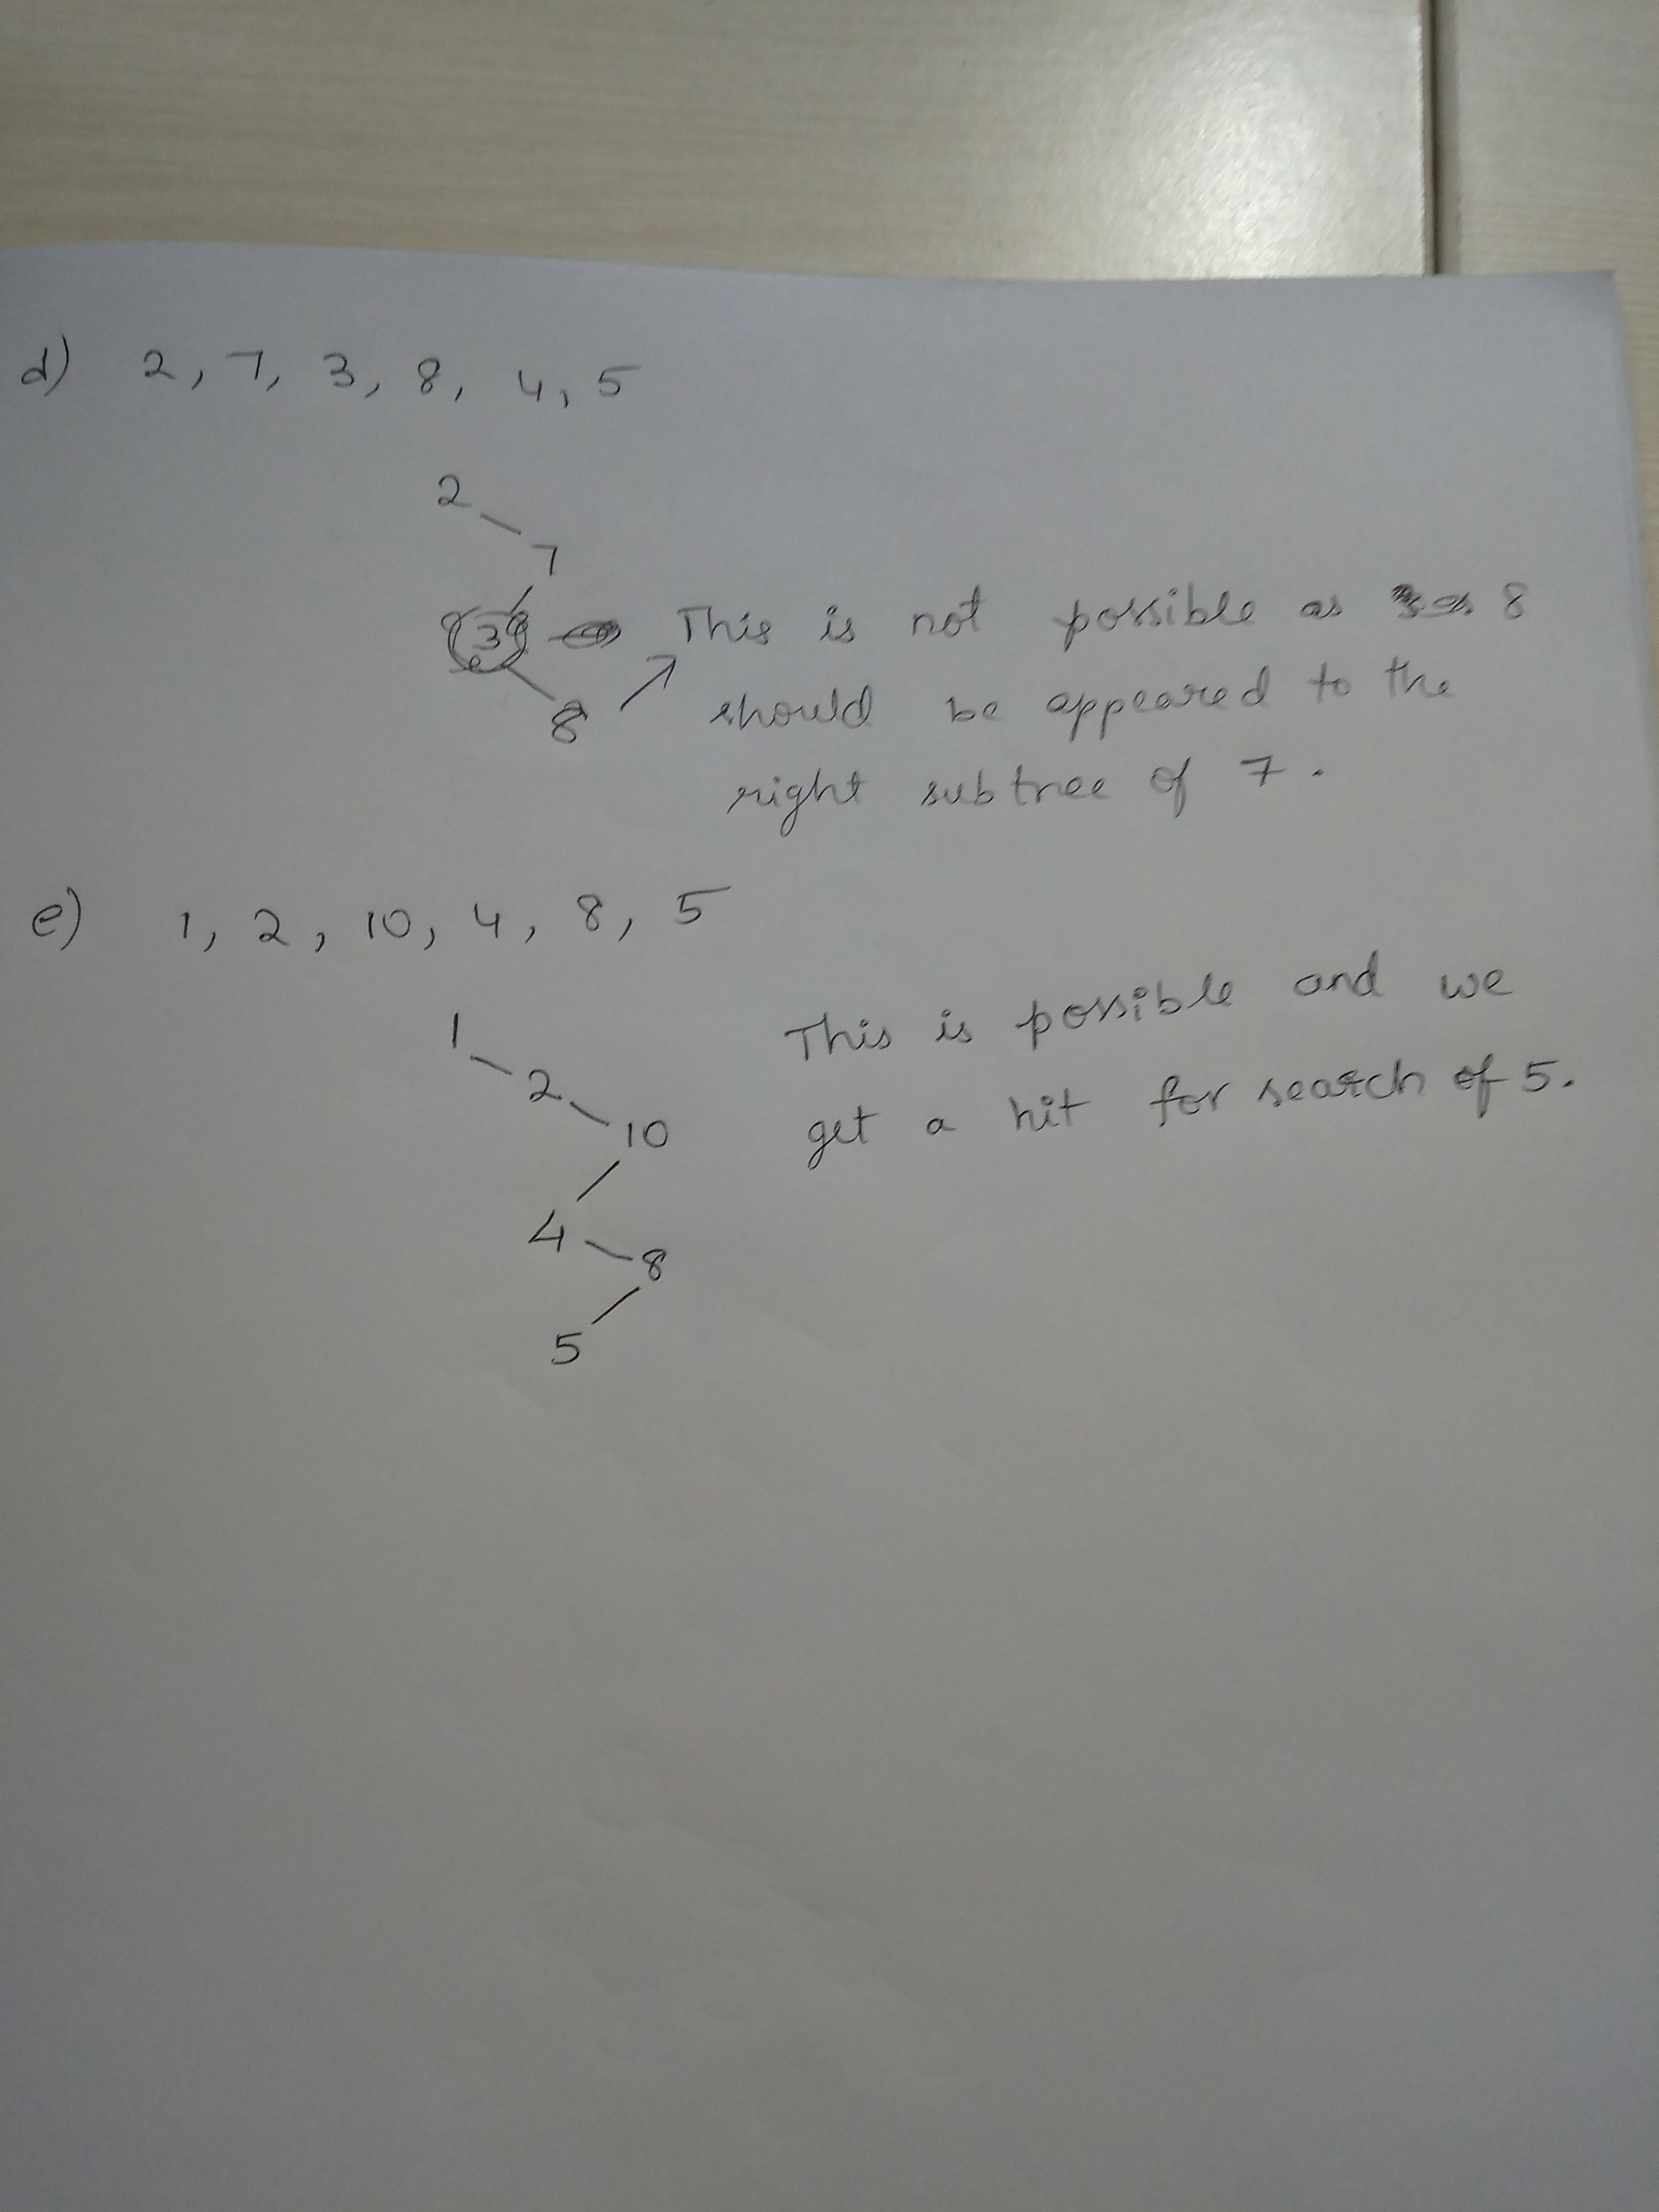 d) 2, 7, 3, 8, 4, 5
2
7
3
This is not possible as 8
8
should be appeared to the
right subtree of 7.
e) 1, 2, 10, 4, 8, 5
This is possible and we
1
2
get a hit for search of 5.
10
4
8
5